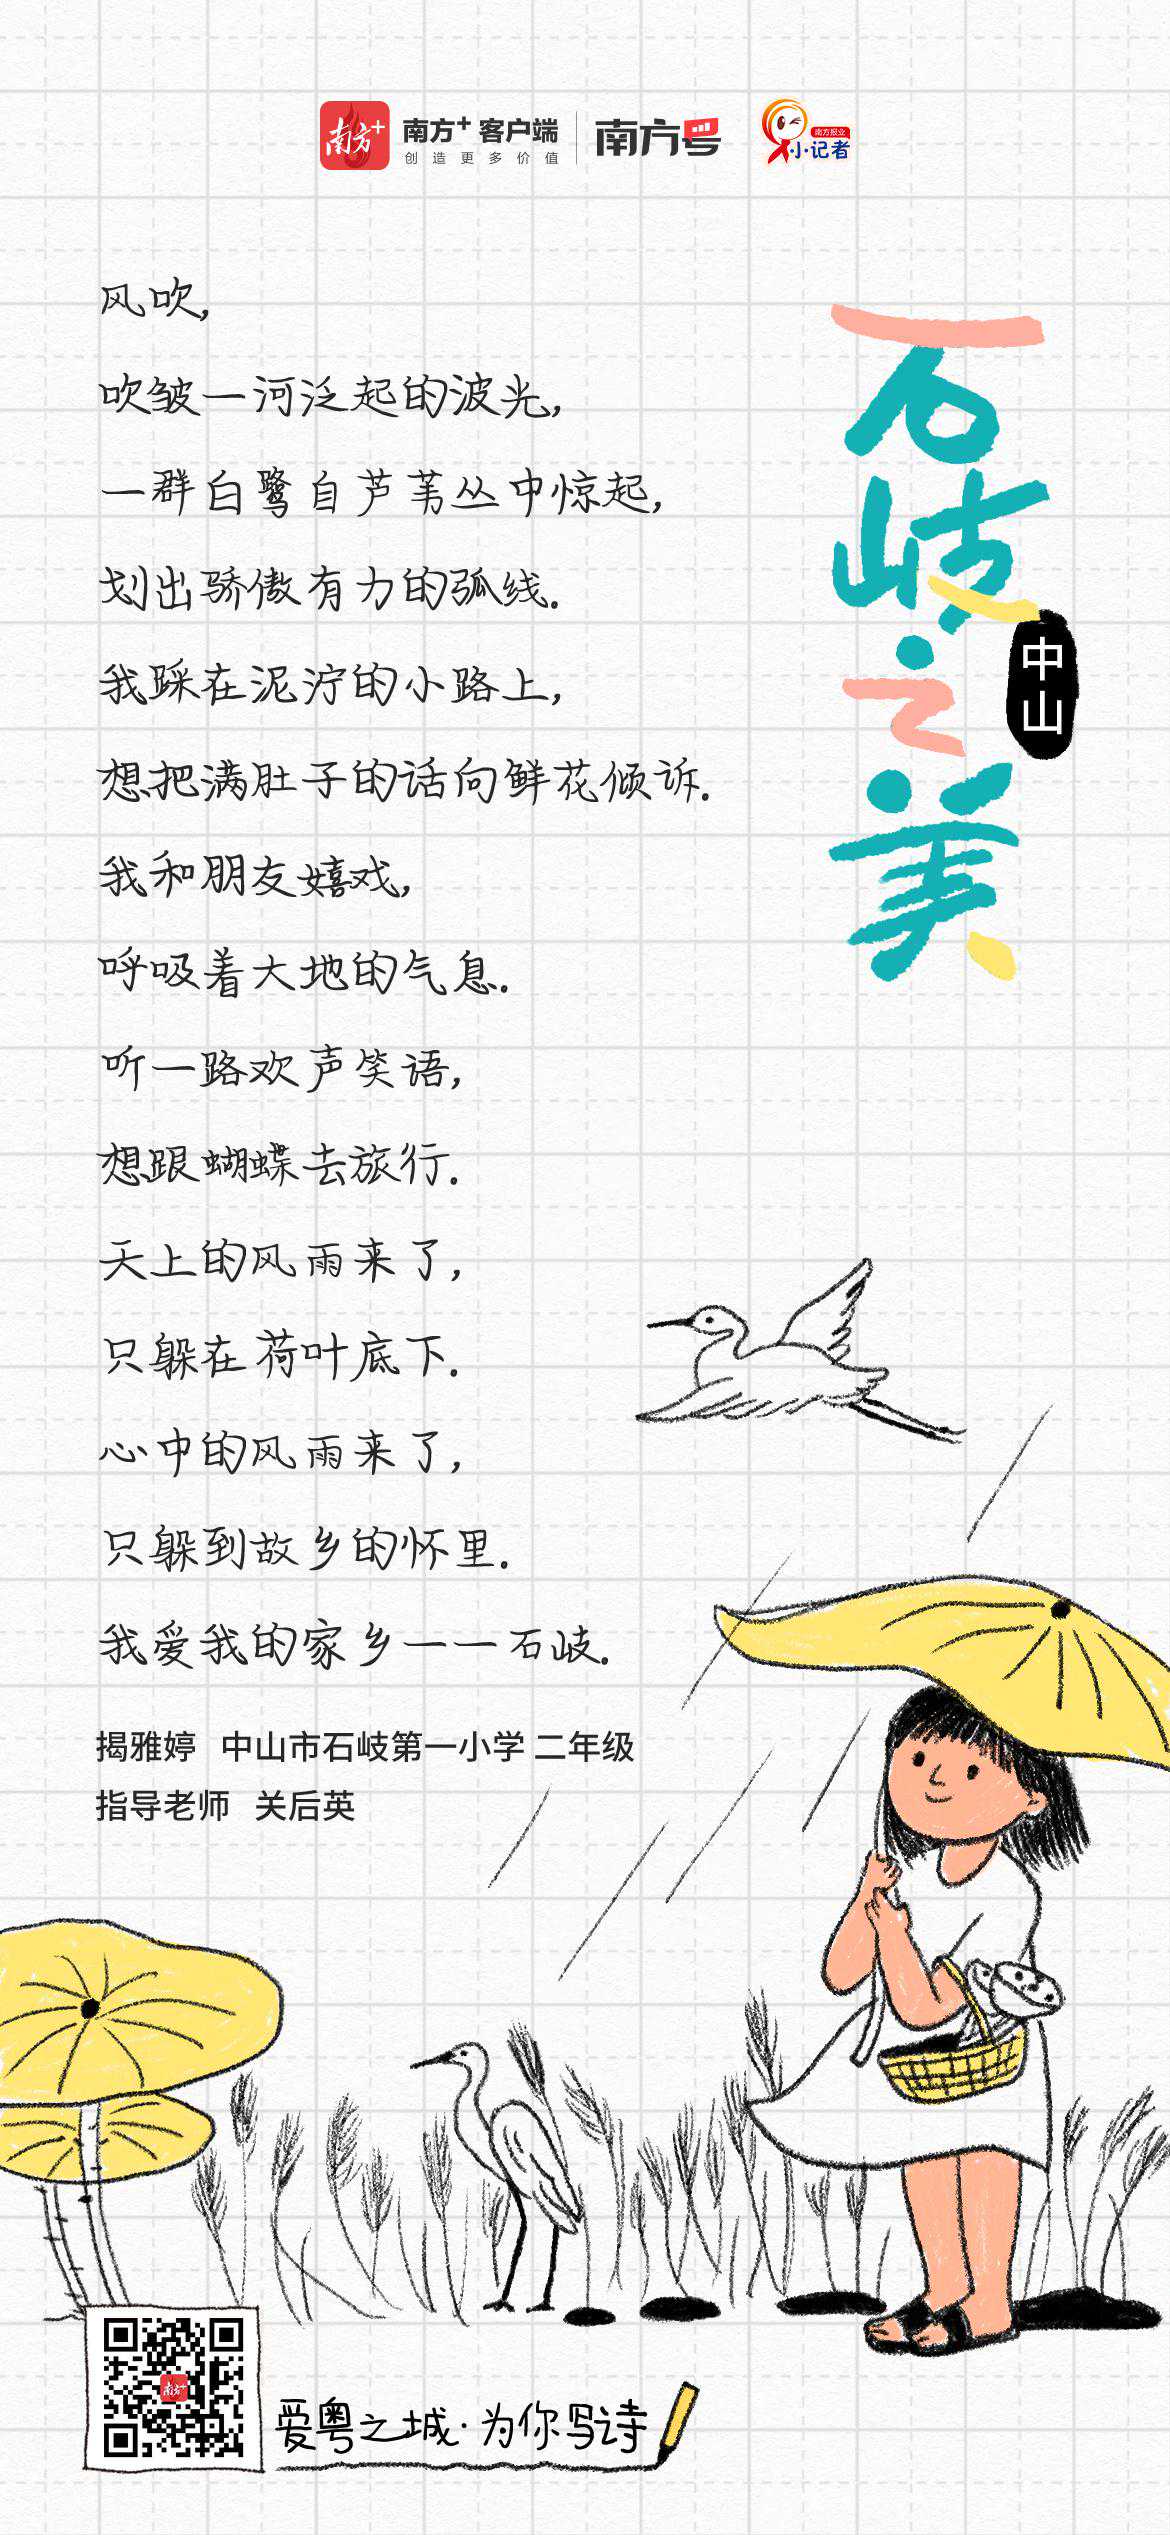 南方+
南方+ 客户端
创造更多价值
南方号
南方报业
小记者
石岐之美
中山
风吹,
吹皱一河泛起的波光,
一群白鹭自芦苇丛中惊起,
划出骄傲有力的弧线.
我踩在泥泞的小路上,
想把满肚子的话向鲜花倾诉.
我和朋友嬉戏,
呼吸着大地的气息.
听一路欢声笑语,
想跟蝴蝶去旅行.
天上的风雨来了,
只躲在荷叶底下.
心中的风雨来了,
只躲到故乡的怀里.
我爱我的家乡——石岐.
揭雅婷 中山市石岐第一小学 二年级
指导老师 关后英
南方+
爱粤之城·为你写诗